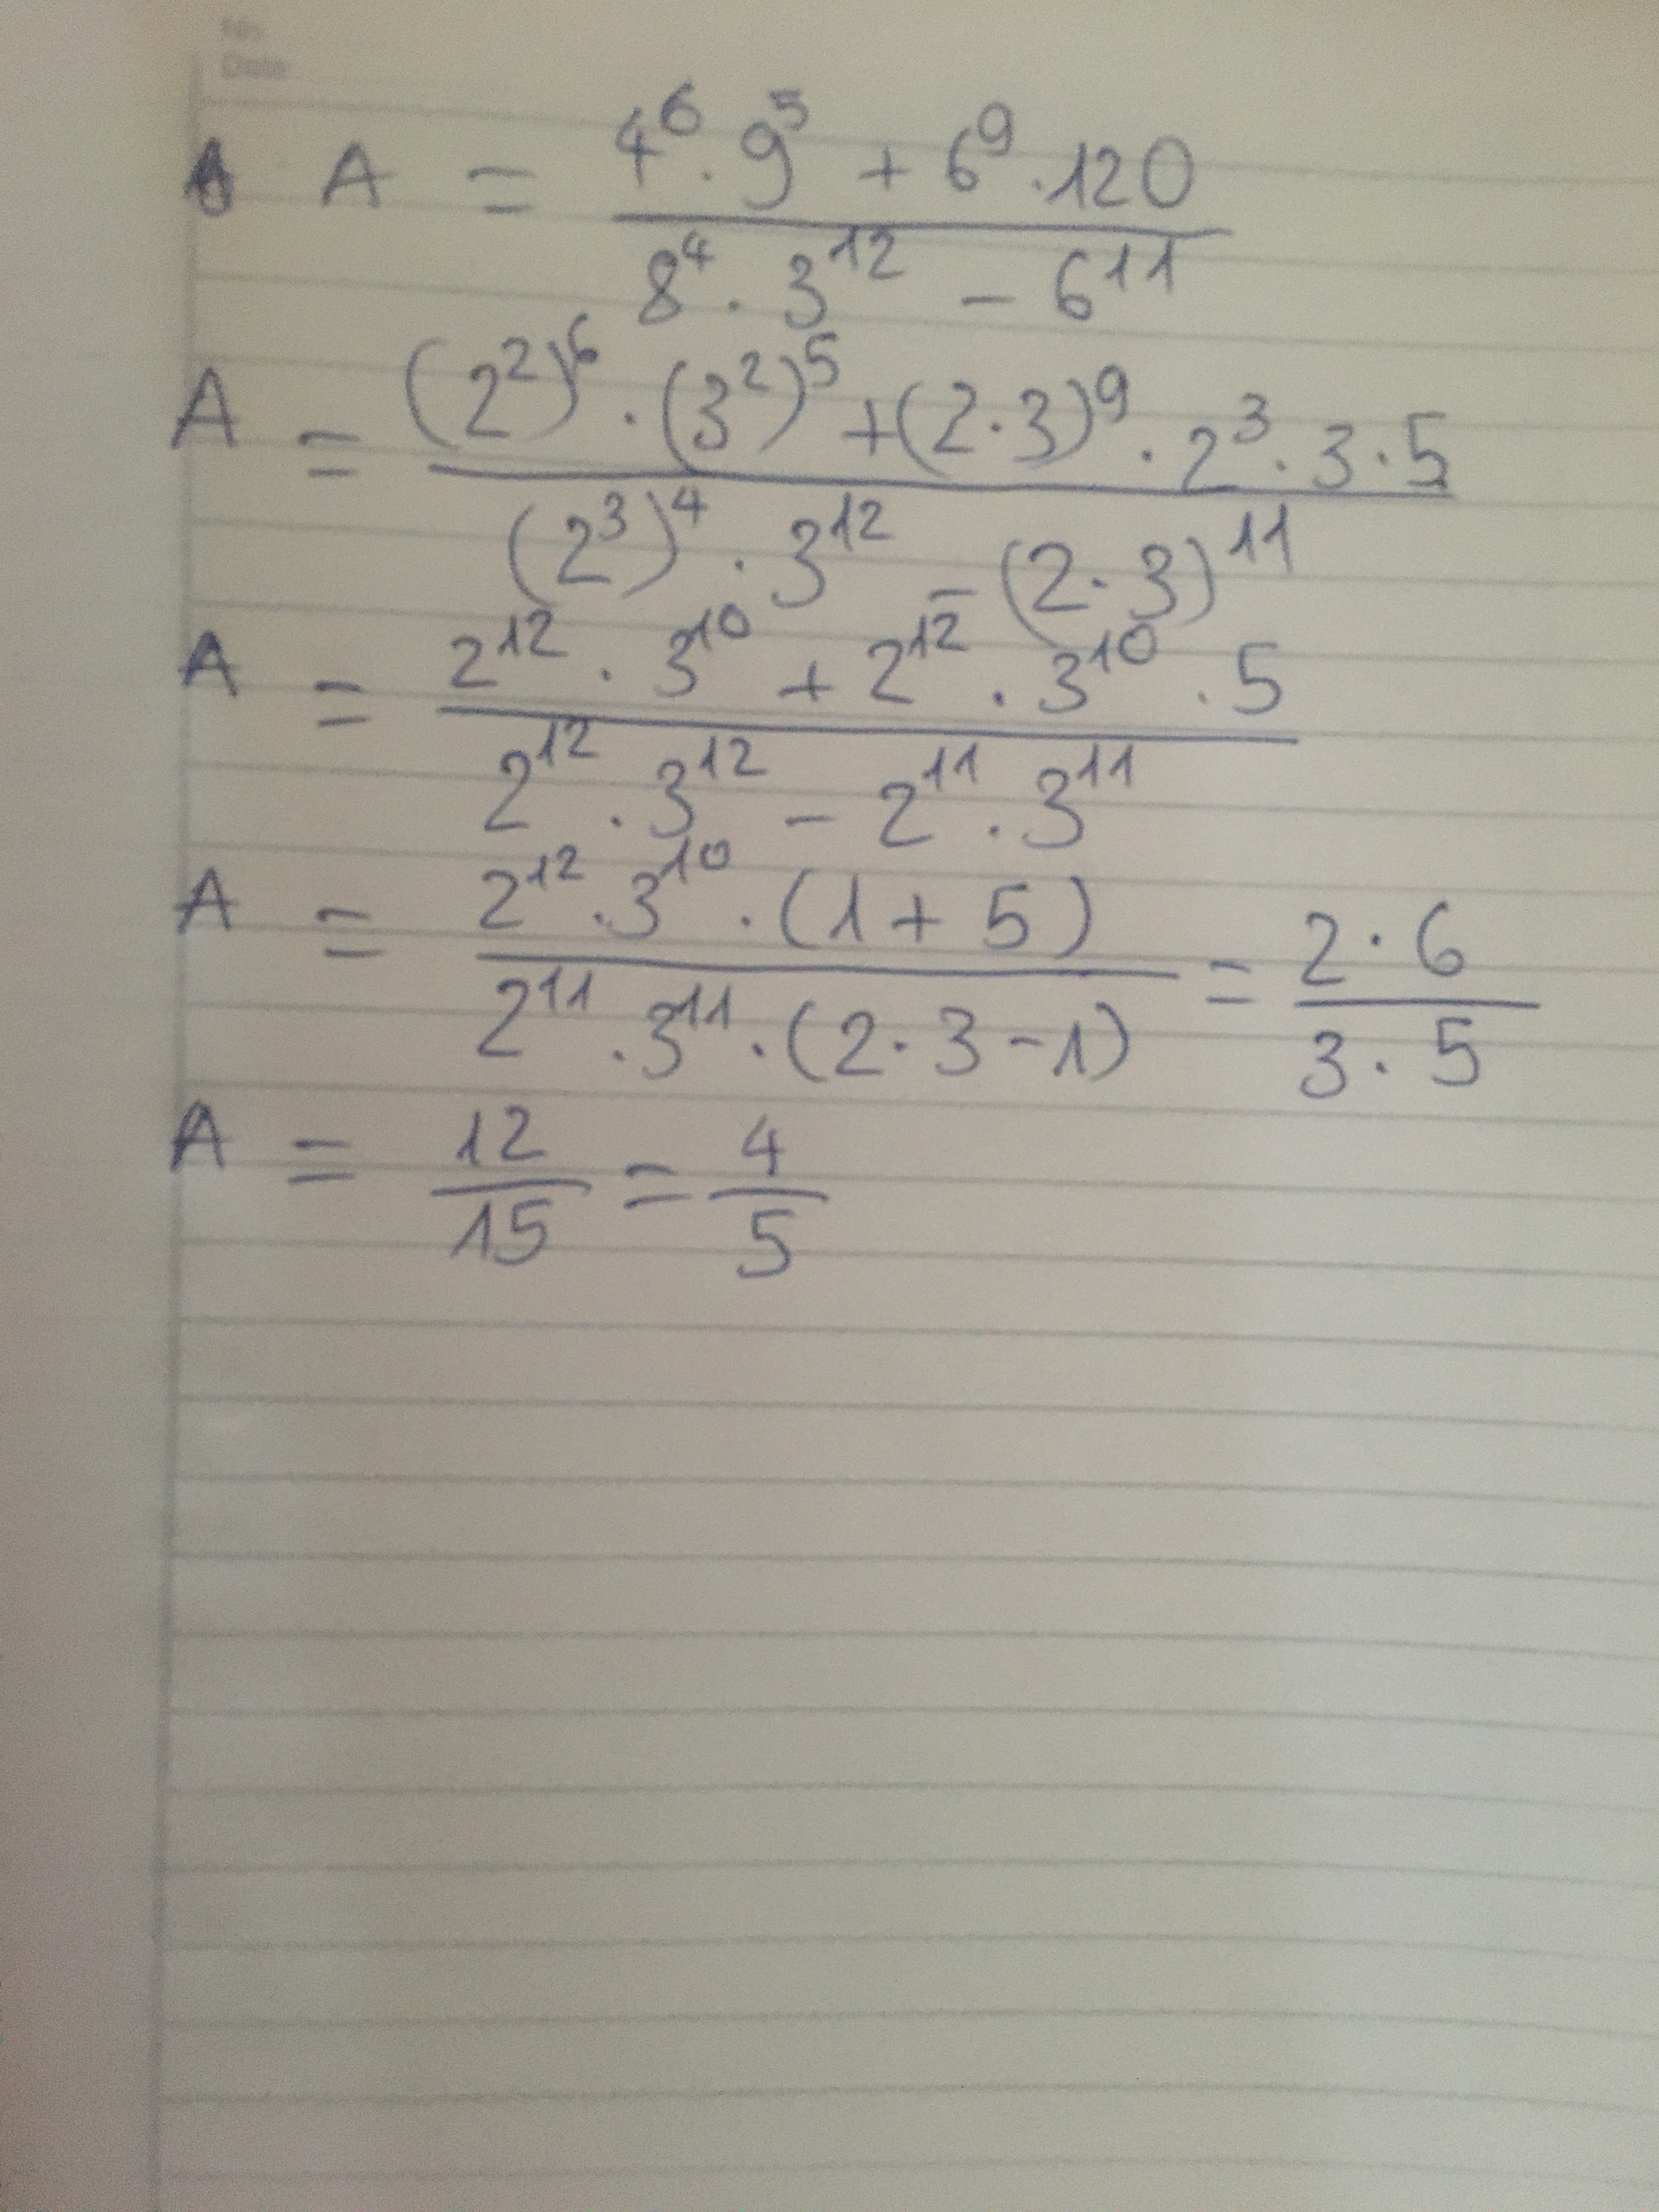 No.
Date
A = (4^6 . 9^5 + 6^9 . 120) / (8^4 . 3^12 - 6^11)
A = ((2^2)^6 . (3^2)^5 + (2.3)^9 . 2^3 . 3 . 5) / ((2^3)^4 . 3^12 - (2.3)^11)
A = (2^12 . 3^10 + 2^12 . 3^10 . 5) / (2^12 . 3^12 - 2^11 . 3^11)
A = (2^12 . 3^10 . (1 + 5)) / (2^11 . 3^11 . (2.3-1)) = (2.6) / (3.5)
A = 12/15 = 4/5